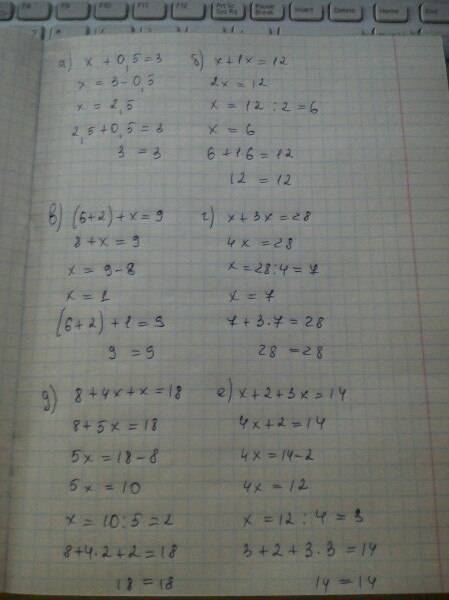 а) x + 0,5 = 3
x = 3 - 0,5
x = 2,5
2,5 + 0,5 = 3
3 = 3
б) x + 1x = 12
2x = 12
x = 12 : 2 = 6
x = 6
6 + 1 6 = 12
12 = 12
в) (6+2) + x = 9
8 + x = 9
x = 9 - 8
x = 1
(6+2) + 1 = 9
9 = 9
г) x + 3x = 28
4x = 28
x = 28 : 4 = 7
x = 7
7 + 3 · 7 = 28
28 = 28
д) 8 + 4x + x = 18
8 + 5x = 18
5x = 18 - 8
5x = 10
x = 10 : 5 = 2
8 + 4 · 2 + 2 = 18
18 = 18
е) x + 2 + 3x = 14
4x + 2 = 14
4x = 14 - 2
4x = 12
x = 12 : 4 = 3
3 + 2 + 3 · 3 = 14
14 = 14